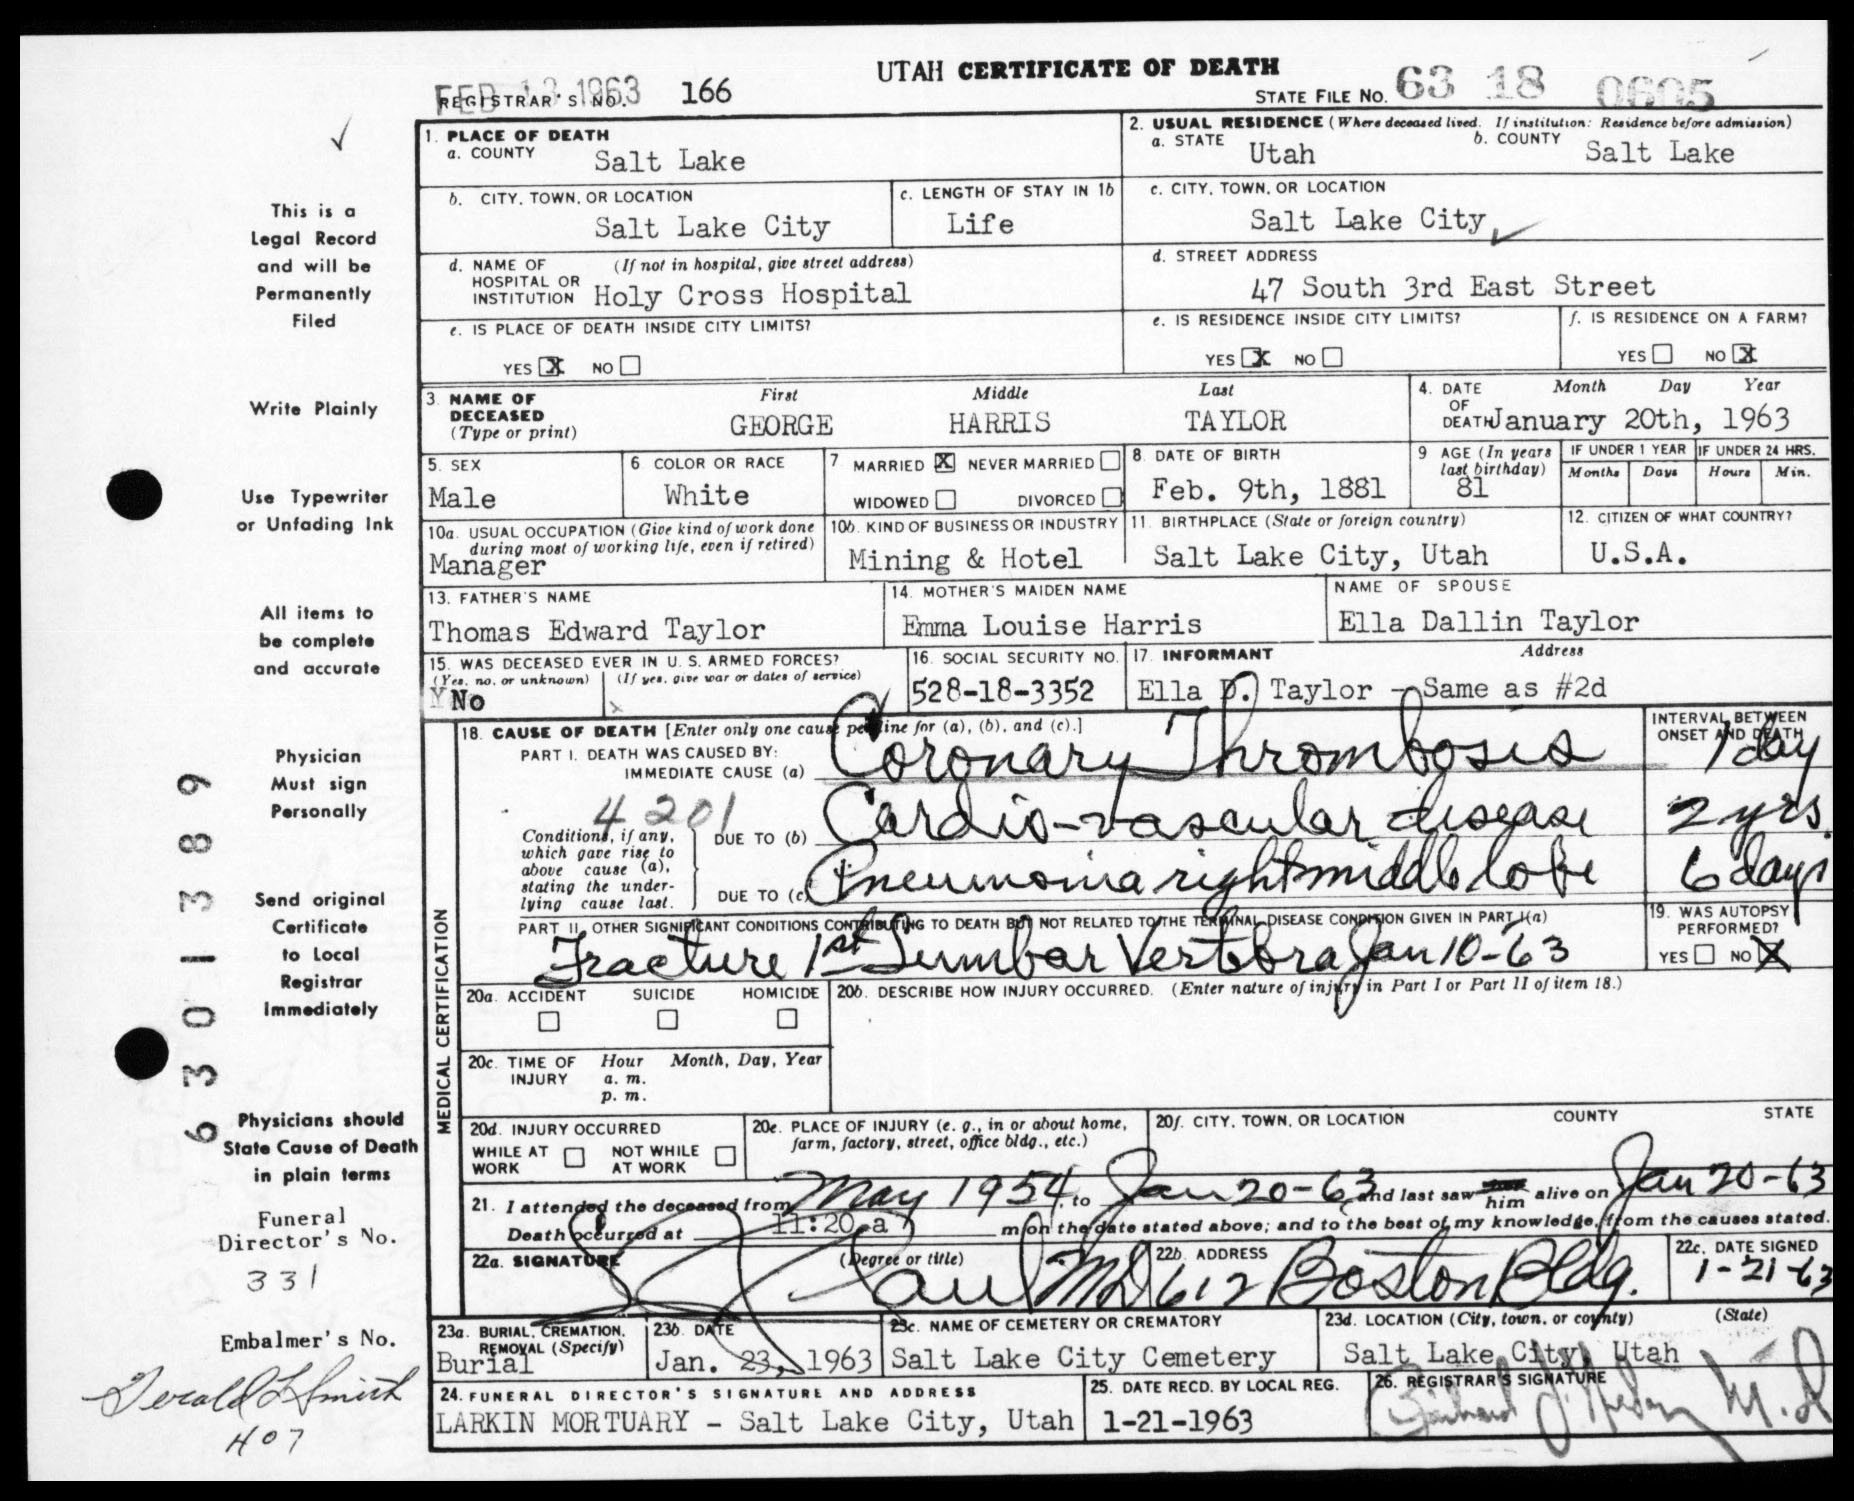 UTAH CERTIFICATE OF DEATH
FEB 13 1963
REGISTRAR'S NO. 166
STATE FILE NO. 63 18 0605
1. PLACE OF DEATH
a. COUNTY Salt Lake
2. USUAL RESIDENCE (Where deceased lived. If institution: Residence before admission)
a. STATE Utah b. COUNTY Salt Lake
b. CITY, TOWN, OR LOCATION Salt Lake City
c. LENGTH OF STAY IN 1b Life
c. CITY, TOWN, OR LOCATION Salt Lake City
d. NAME OF HOSPITAL OR INSTITUTION (If not in hospital, give street address) Holy Cross Hospital
d. STREET ADDRESS 47 South 3rd East Street
e. IS PLACE OF DEATH INSIDE CITY LIMITS?
YES X NO
e. IS RESIDENCE INSIDE CITY LIMITS?
YES X NO
f. IS RESIDENCE ON A FARM?
YES NO X
3. NAME OF DECEASED (Type or print)
First Middle Last
GEORGE HARRIS TAYLOR
4. DATE OF DEATH Month Day Year
January 20th, 1963
5. SEX Male
6. COLOR OR RACE White
7. MARRIED X NEVER MARRIED
WIDOWED DIVORCED
8. DATE OF BIRTH Feb. 9th, 1881
9 AGE (In years last birthday) 81
IF UNDER 1 YEAR Months Days
IF UNDER 24 HRS. Hours Min.
10a. USUAL OCCUPATION (Give kind of work done during most of working life, even if retired)
Manager
10b. KIND OF BUSINESS OR INDUSTRY
Mining & Hotel
11. BIRTHPLACE (State or foreign country)
Salt Lake City, Utah
12. CITIZEN OF WHAT COUNTRY?
U.S.A.
13. FATHER'S NAME
Thomas Edward Taylor
14. MOTHER'S MAIDEN NAME
Emma Louise Harris
NAME OF SPOUSE
Ella Dallin Taylor
15. WAS DECEASED EVER IN U. S. ARMED FORCES?
(Yes, no, or unknown) (If yes, give war or dates of service)
No
16. SOCIAL SECURITY NO.
528-18-3352
17. INFORMANT Address
Ella D. Taylor - Same as #2d
MEDICAL CERTIFICATION
18. CAUSE OF DEATH [Enter only one cause per line for (a), (b), and (c).]
INTERVAL BETWEEN ONSET AND DEATH
PART I. DEATH WAS CAUSED BY:
IMMEDIATE CAUSE (a) Coronary Thrombosis 1 day
4201
Conditions, if any, which gave rise to above cause (a), stating the underlying cause last.
DUE TO (b) Cardio-vascular disease 2 yrs.
DUE TO (c) Pneumonia right middle lobe 6 days
PART II. OTHER SIGNIFICANT CONDITIONS CONTRIBUTING TO DEATH BUT NOT RELATED TO THE TERMINAL DISEASE CONDITION GIVEN IN PART I(a)
Fracture 1st Lumbar Vertebra Jan 10-63
19. WAS AUTOPSY PERFORMED?
YES NO X
20a. ACCIDENT SUICIDE HOMICIDE
20b. DESCRIBE HOW INJURY OCCURRED. (Enter nature of injury in Part I or Part II of item 18.)
20c. TIME OF INJURY Hour Month, Day, Year
a. m.
p. m.
20d. INJURY OCCURRED
WHILE AT WORK NOT WHILE AT WORK
20e. PLACE OF INJURY (e. g., in or about home, farm, factory, street, office bldg., etc.)
20f. CITY, TOWN, OR LOCATION COUNTY STATE
21. I attended the deceased from May 1954, to Jan 20-63 and last saw him alive on Jan 20-63
Death occurred at 11:20 a m on the date stated above; and to the best of my knowledge, from the causes stated.
22a. SIGNATURE (Degree or title) Paul MD
22b. ADDRESS 612 Boston Bldg.
22c. DATE SIGNED 1-21-63
23a. BURIAL, CREMATION, REMOVAL (Specify)
Burial
23b. DATE
Jan. 23, 1963
23c. NAME OF CEMETERY OR CREMATORY
Salt Lake City Cemetery
23d. LOCATION (City, town, or county) (State)
Salt Lake City, Utah
24. FUNERAL DIRECTOR'S SIGNATURE AND ADDRESS
LARKIN MORTUARY - Salt Lake City, Utah
25. DATE RECD. BY LOCAL REG.
1-21-1963
26. REGISTRAR'S SIGNATURE
M.D
This is a
Legal Record
and will be
Permanently
Filed
Write Plainly
Use Typewriter
or Unfading Ink
All items to
be complete
and accurate
Physician
Must sign
Personally
Send original
Certificate
to Local
Registrar
Immediately
Physicians should
State Cause of Death
in plain terms
Funeral
Director's No.
331
Embalmer's No.
Gerald L Smith
407
6301389